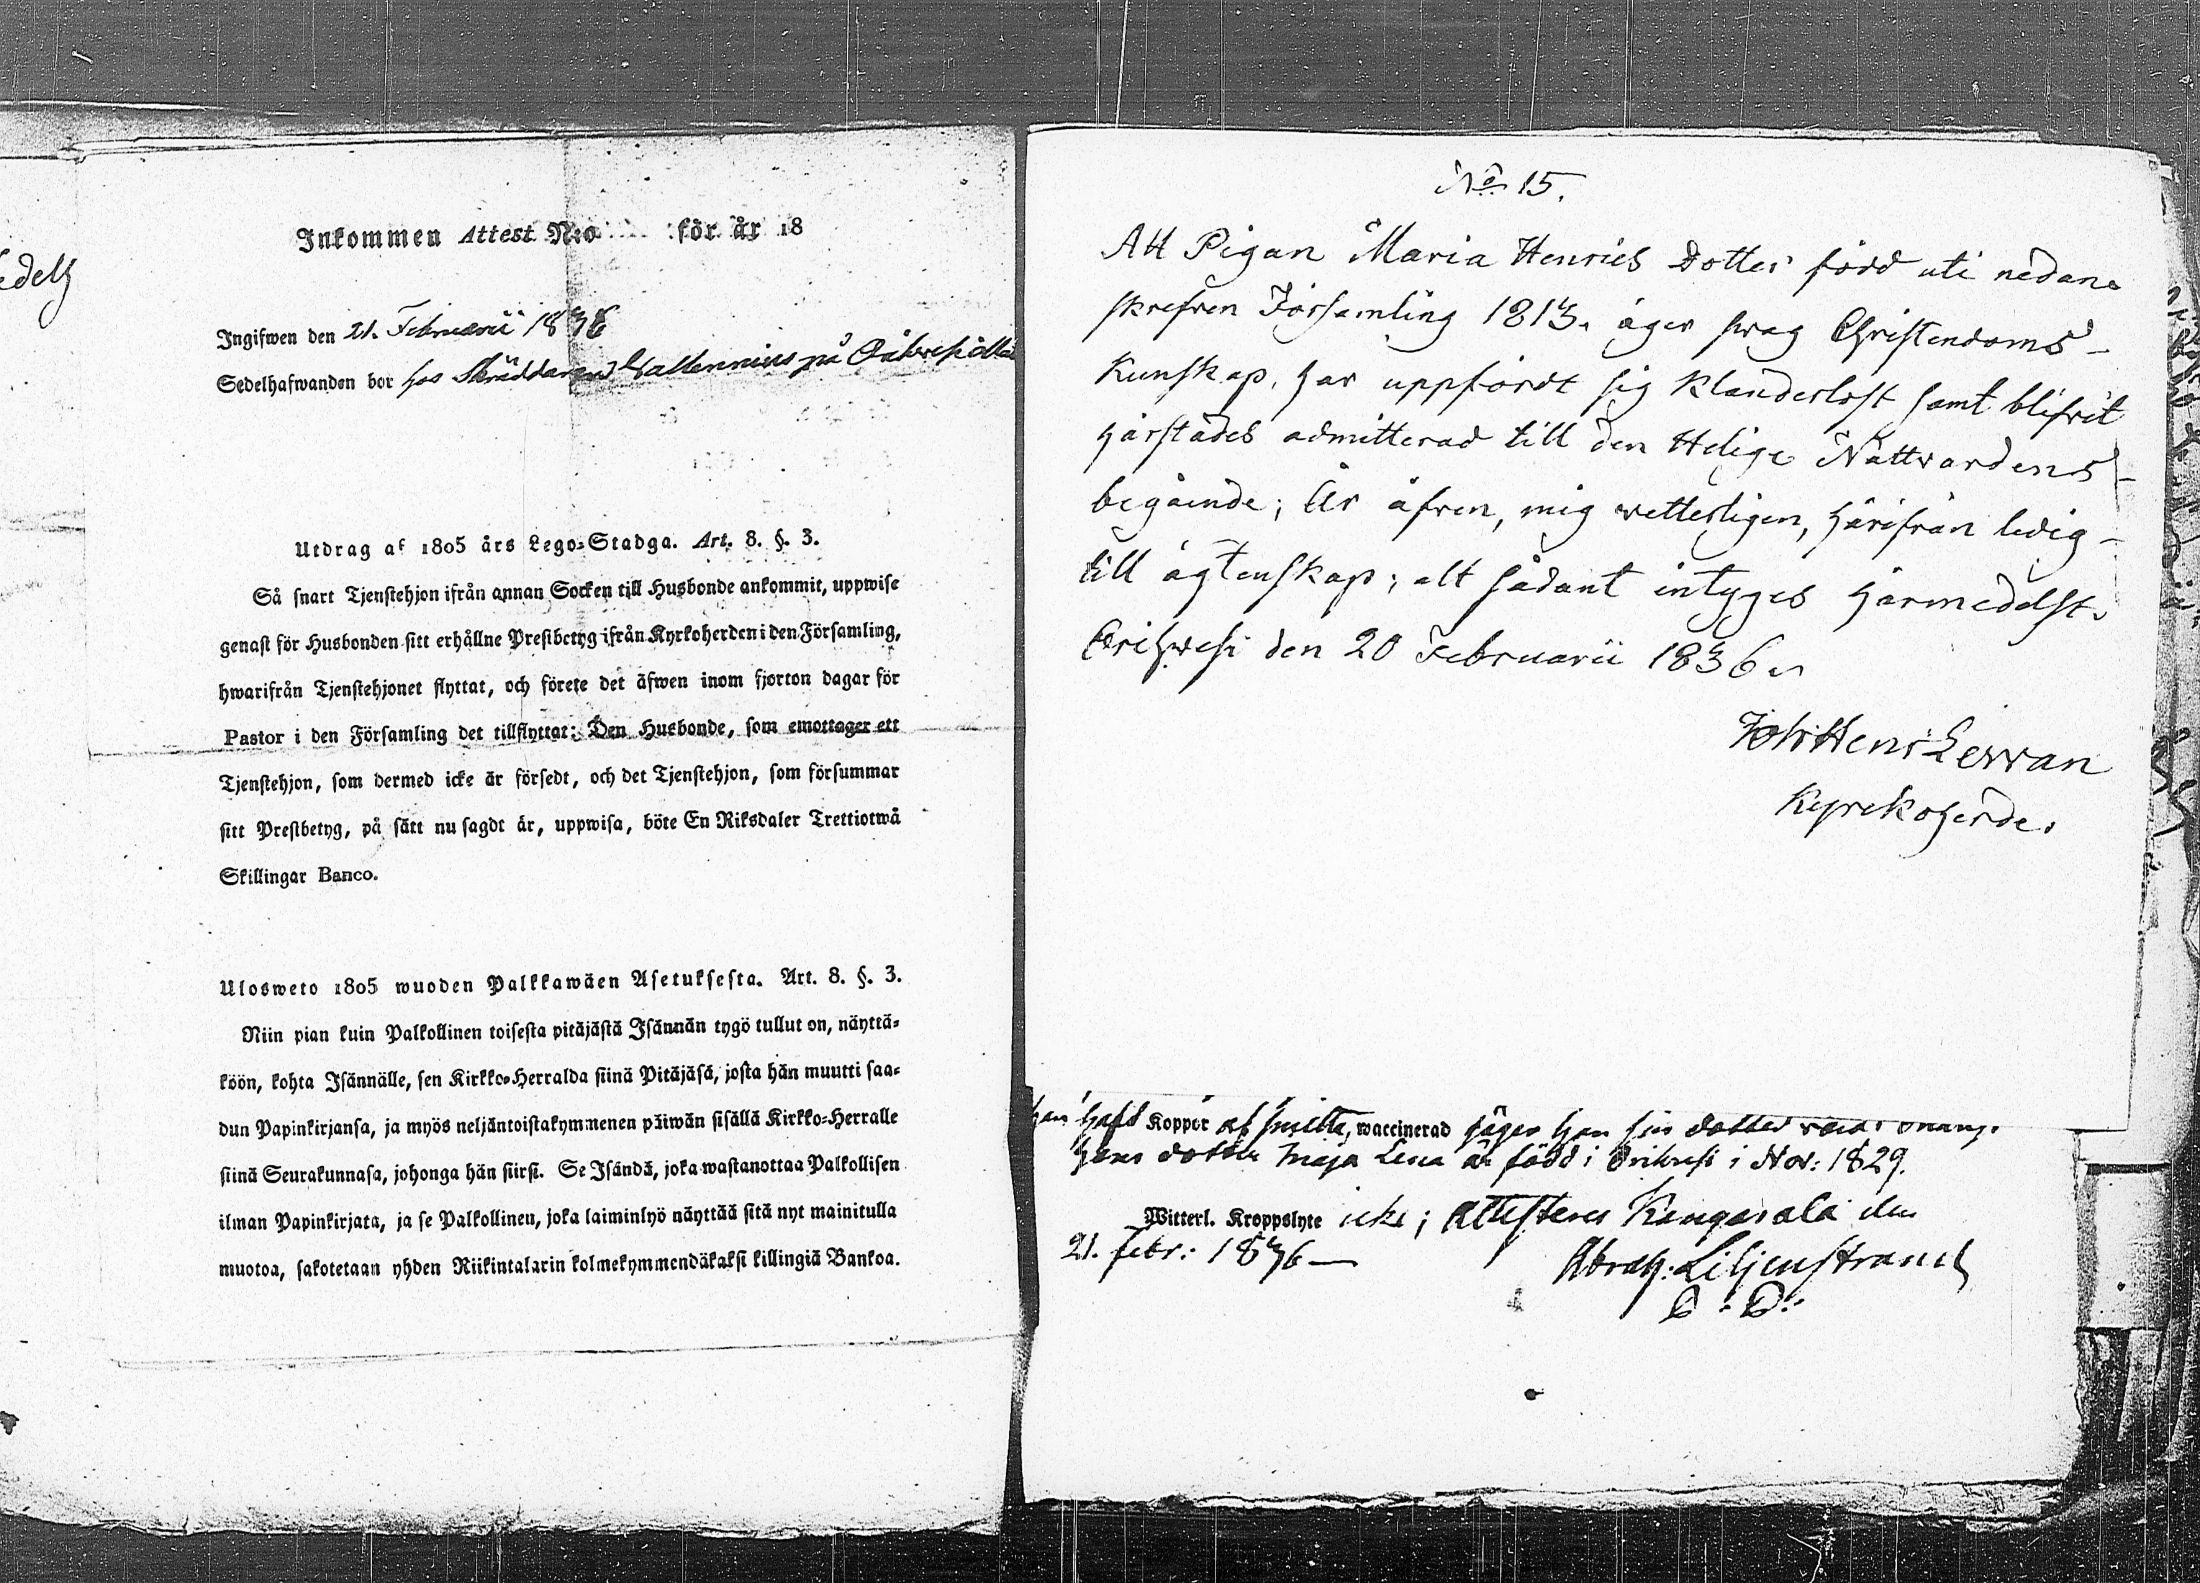 edelh
Inkommen Attest N:o för år 18
Ingifwen den 21. Februarii 1836
Sedelhafwanden bor hos Skräddaren på
Utdrag af 1805 års Lego-Stadga. Art. 8. §. 3.
Så snart Tjenstehjon ifrån annan Socken till Husbonde ankommit, uppwise
genast för Husbonden sitt erhållne Prestbetyg ifrån Kyrkoherden i den Församling,
hwarifrån Tjenstehjonet flyttat, och förete det äfwen inom fjorton dagar för
Pastor i den Församling det tillflyttat: Den Husbonde, som emottager ett
Tjenstehjon, som dermed icke är försedt, och det Tjenstehjon, som försummar
sitt Prestbetyg, på sätt nu sagdt är, uppwisa, böte En Riksdaler Trettiotwå
Skillingar Banco.
Ulosweto 1805 wuoden Palkkawäen Asetuksesta. Art. 8. §. 3.
Niin pian kuin Palkollinen toisesta pitäjästä Isännän tygö tullut on, näyttä-
köön, kohta Isännälle, sen Kirkko-Herralda siinä Pitäjäsä, josta hän muutti saa-
dun Papinkirjansa, ja myös neljäntoistakymmenen päiwän sisällä Kirkko-Herralle
siinä Seurakunnasa, johonga hän siirsi. Se Isändä, joka wastanottaa Palkollisen
ilman Papinkirjata, ja se Palkollinen, joka laiminlyö näyttää sitä nyt mainitulla
muotoa, sakotetaan yhden Riikintalarin kolmekymmendäkaksi killingiä Bankoa.
No 15.
Att Pigan Maria Henrics Dotter född uti nedan-
skrefven Församling 1813. äger svag Christendoms-
Kunskap, har uppfördt sig klanderlost samt blifvit
härstädes admitterad till den Helige Nattvardens
begående; Är äfven, mig vetterligen, härifrån ledig
till ägtenskap; alt sådant intyges härmedelst.
Orihvesi den 20 Februarii 1836
Joh: Henr: Lervan
Kyrckoherde.
haft Koppor af smitta, waccinerad säger hon sin dotter vara
hens dotter Maja Lena är född i Orihvesi i Nov: 1829.
Witterl. Kroppslyte icke; attesteras Kangasala den
21. Febr: 1836 —
Abrah: Liljenstrand